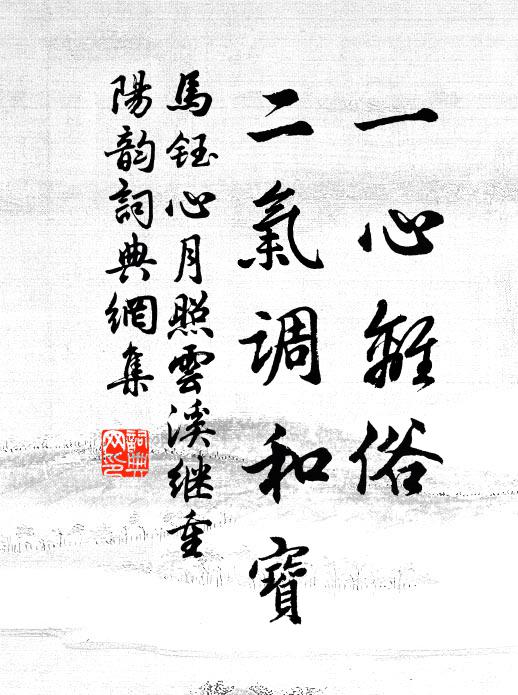 一心離俗
二氣調和寶
馬鈺心月照雲溪继重
陽韵詞典網集
詞典网印